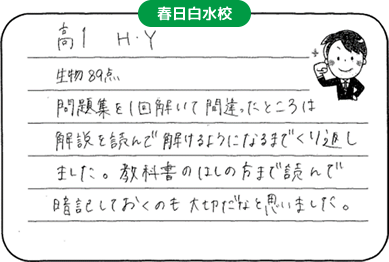 春日白水校
高1 H・Y
生物89点
問題集を1回解いて間違ったところは
解説を読んで解けるようになるまでくり返し
ました。教科書のはしの方まで読んで
暗記しておくのも大切だなと思いました。